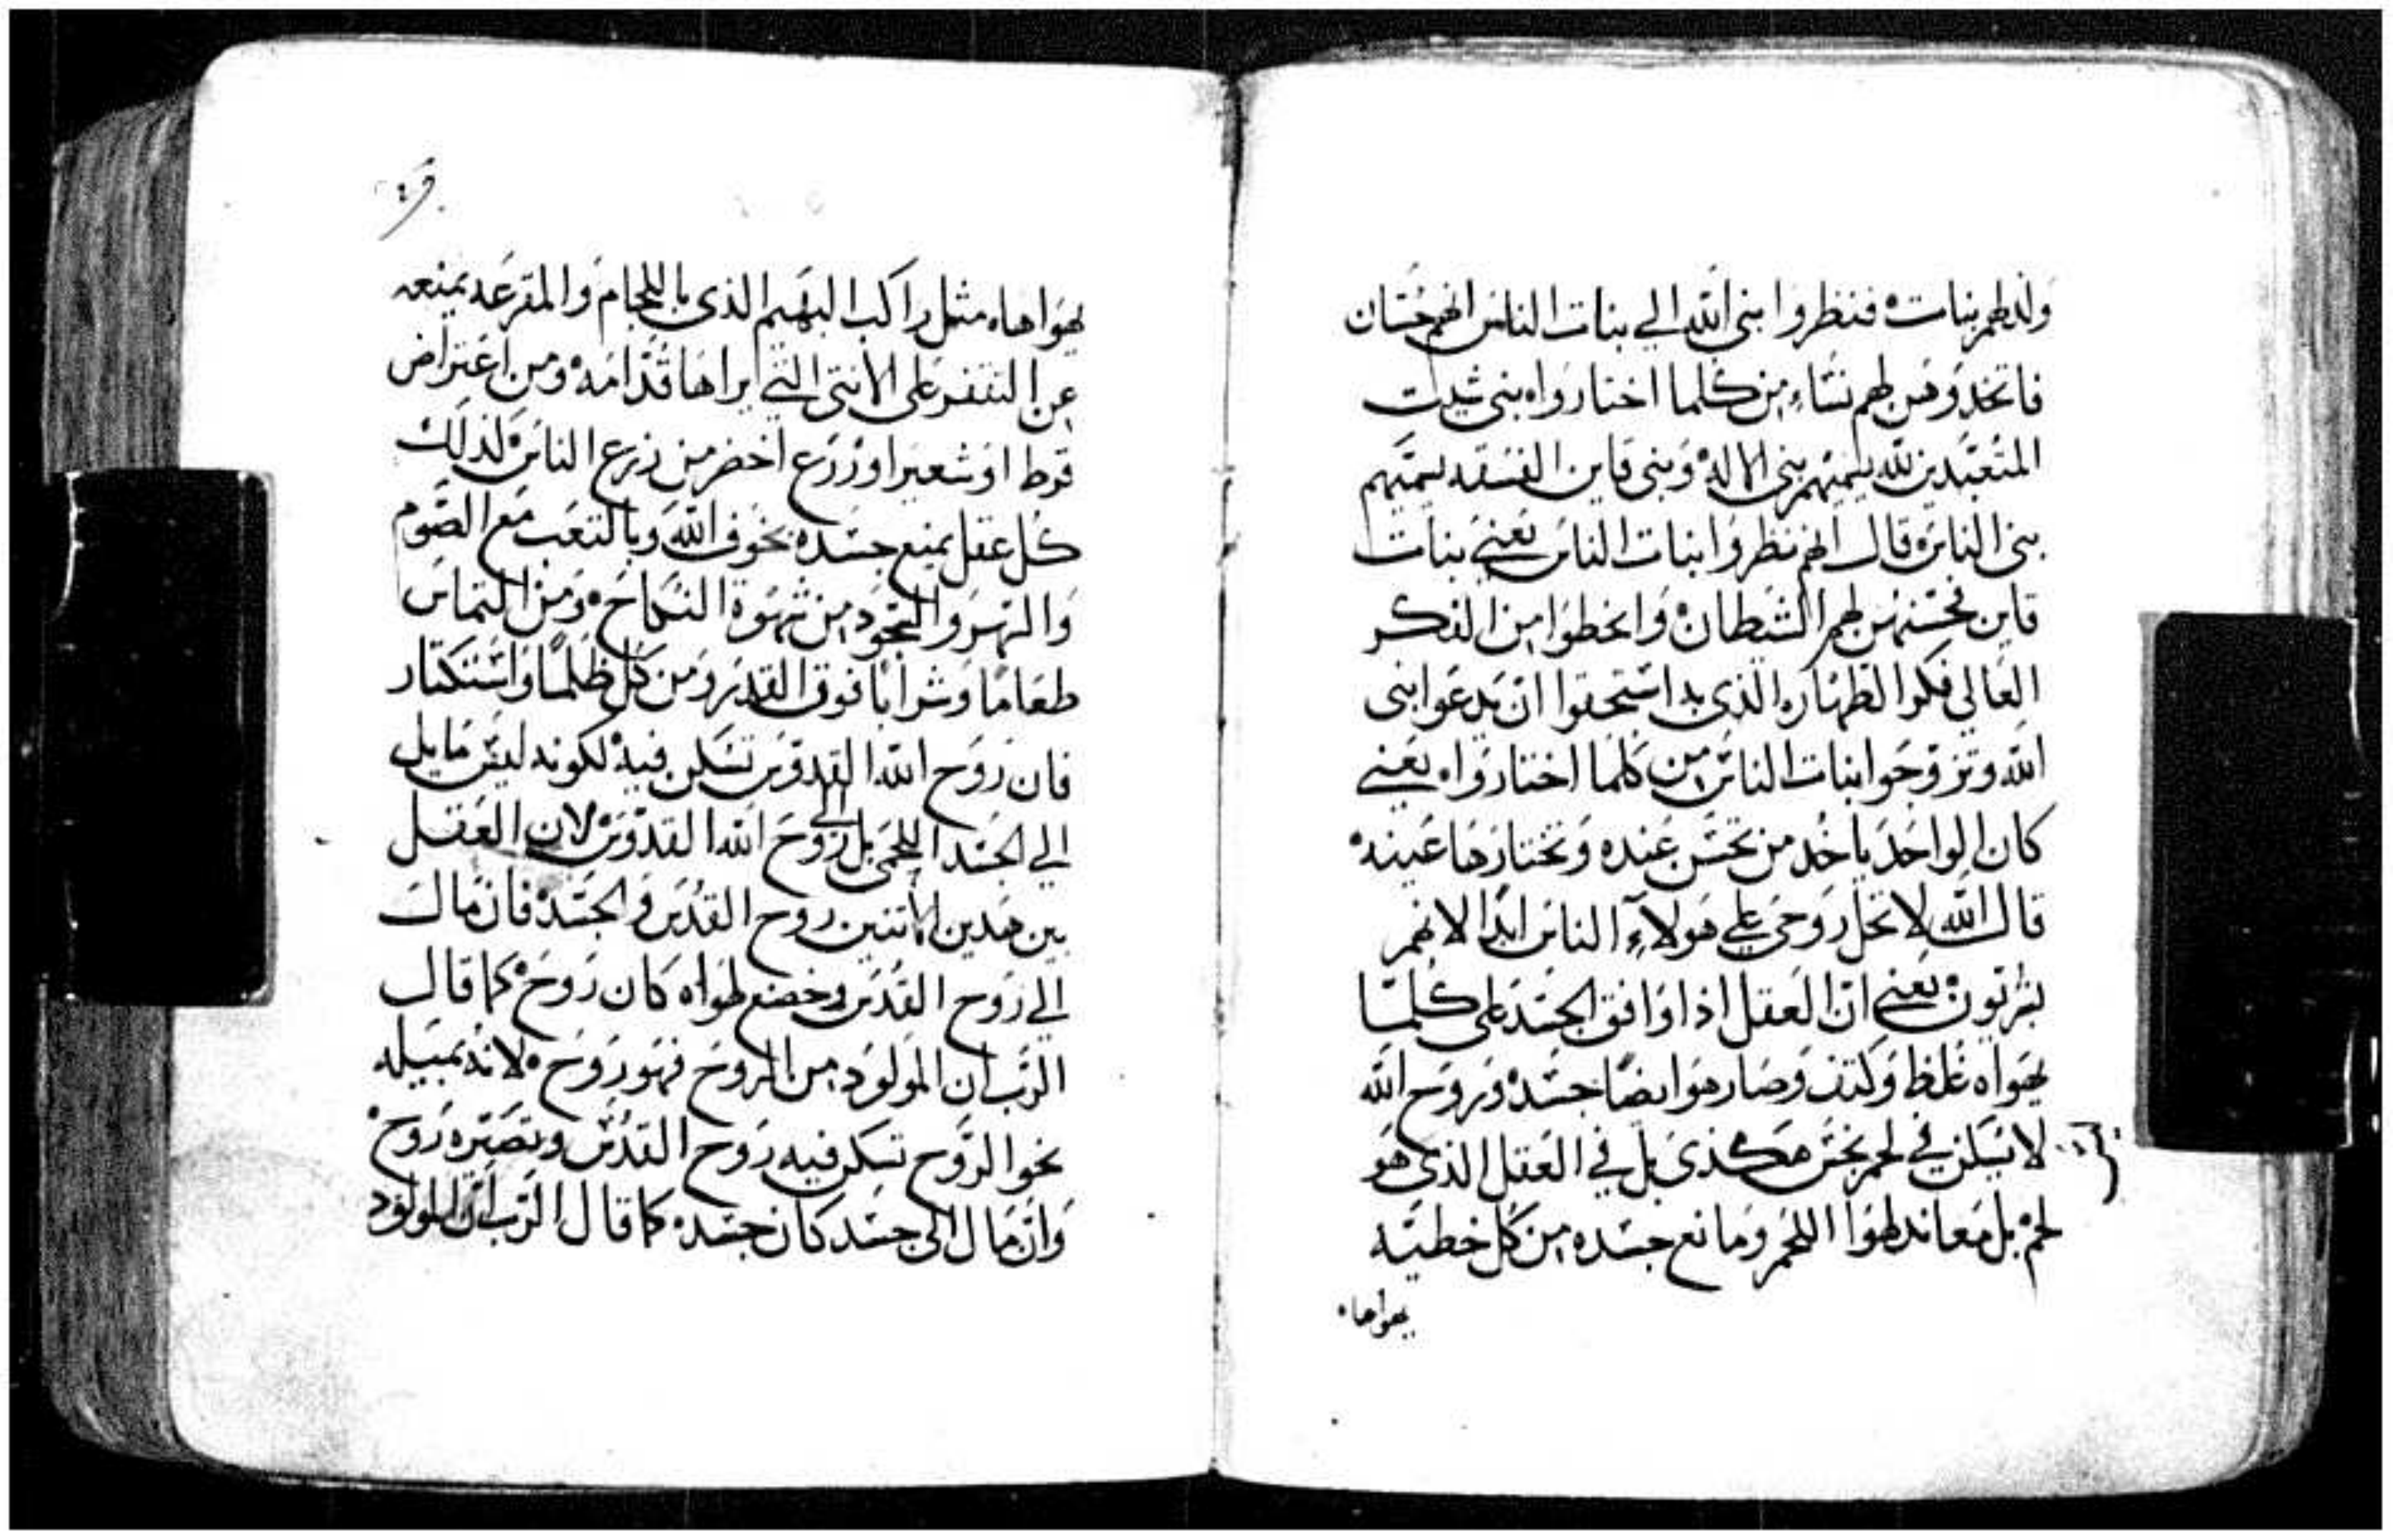 ولد لهم بنات ۰ فنظروا بني الله الي بنات الناس انهم حسان
فاتخدوهن لهم نساء من كلما اختارواه بني شيت
المتعبدين لله يسميهم بني الاله ۰ وبني قاين الفسقه يسميهم
بني الناس ۰ قال انهم نظروا بنات الناس يعني بنات
قاين فحسنهن لهم الشيطان ۰ وانحطوا من الفكر
العالي فكر الطهاره الذي به استحقوا ان يدعوا بني
الله وتزوجوا بنات الناس من كلما اختارواه يعني
كان الواحد ياخد من تحسن عنده وتختارها عينه ۰
قال الله لا تحل روحي علي هولاء الناس ابدا لانهم
بشريون ۰ يعني ان العقل اذا وافق الجسد علي كلما
يهواه غلظ وكتف وصار هو ايضا جسد ۰ وروح الله
لا تسكن في لحم نجس هكذي بل في العقل الذي هو
لحم بل معاند لهوا اللحم ومانع جسده من كل خطيه
يهواها ۰
يهواها ۰ مثل راكب البهيم الذي باللجام والمقرعه يمنعه
عن القفز علي الانتي التي يراها قدامه ۰ ومن اعتراض
قرط او شعير او زرع اخضر من زرع الناس ۰ لذلك
كل عقل يمنع جسده بخوف الله وبالتعب مع الصوم
والسهر والسجود من شهوة النكاح ۰ ومن التماس
طعاما وشرابا فوق القدر ومن كل ظلما واستكتار
فان روح الله القدوس تسكن فيه لكونه ليس مايل
الي الجسد اللحمي بل الي روح الله القدوس ۰ لان العقل
بين هدين الاتنين روح القدس والجسد ۰ فان مال
الي روح القدس وخضع لهواه كان روح ۰ كما قال
الرب ان المولود من الروح فهو روح ۰ لانه بميله
نحو الروح تسكن فيه روح القدس وتصيره روح ۰
وان مال الي جسد كان جسد ۰ كما قال الرب ان المولود